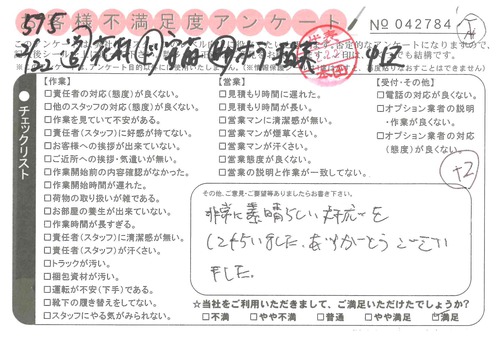 お客様不満足度アンケート
No 042784
575
営業
412
チェックリスト
【作業】
□責任者の対応(態度)が良くない。
□他のスタッフの対応(態度)が良くない。
□作業を見ていて不安がある。
□責任者(スタッフ)に好感が持てない。
□お客様への挨拶が出来ていない。
□ご近所への挨拶・気遣いが無い。
□作業開始前の内容確認がなかった。
□作業開始時間が遅れた。
□荷物の取り扱いが雑である。
□お部屋の養生が出来ていない。
□作業時間が長すぎる。
□責任者(スタッフ)に清潔感が無い。
□責任者(スタッフ)が汗くさい。
□トラックが汚い。
□梱包資材が汚い。
□運転が不安(下手)である。
□靴下の履き替えをしてない。
□スタッフにやる気がみられない。
【営業】
□見積もり時間に遅れた。
□見積もり時間が長い。
□営業マンに清潔感が無い。
□営業マンが煙草くさい。
□営業マンが汗くさい。
□営業態度が良くない。
□営業の説明と作業が一致してない。
【受付・その他】
□電話の対応が良くない。
□オプション業者の説明
・作業が良くない。
□オプション業者の対応
(態度)が良くない。
+2
その他、ご意見・ご要望等ありましたらお書き下さい。
非常に素晴らしい対応を
してもらいました。ありがとうございい
ました。
☆当社をご利用いただきまして、ご満足いただけたでしょうか?
□不満 □やや不満 □普通 □やや満足 ☑満足